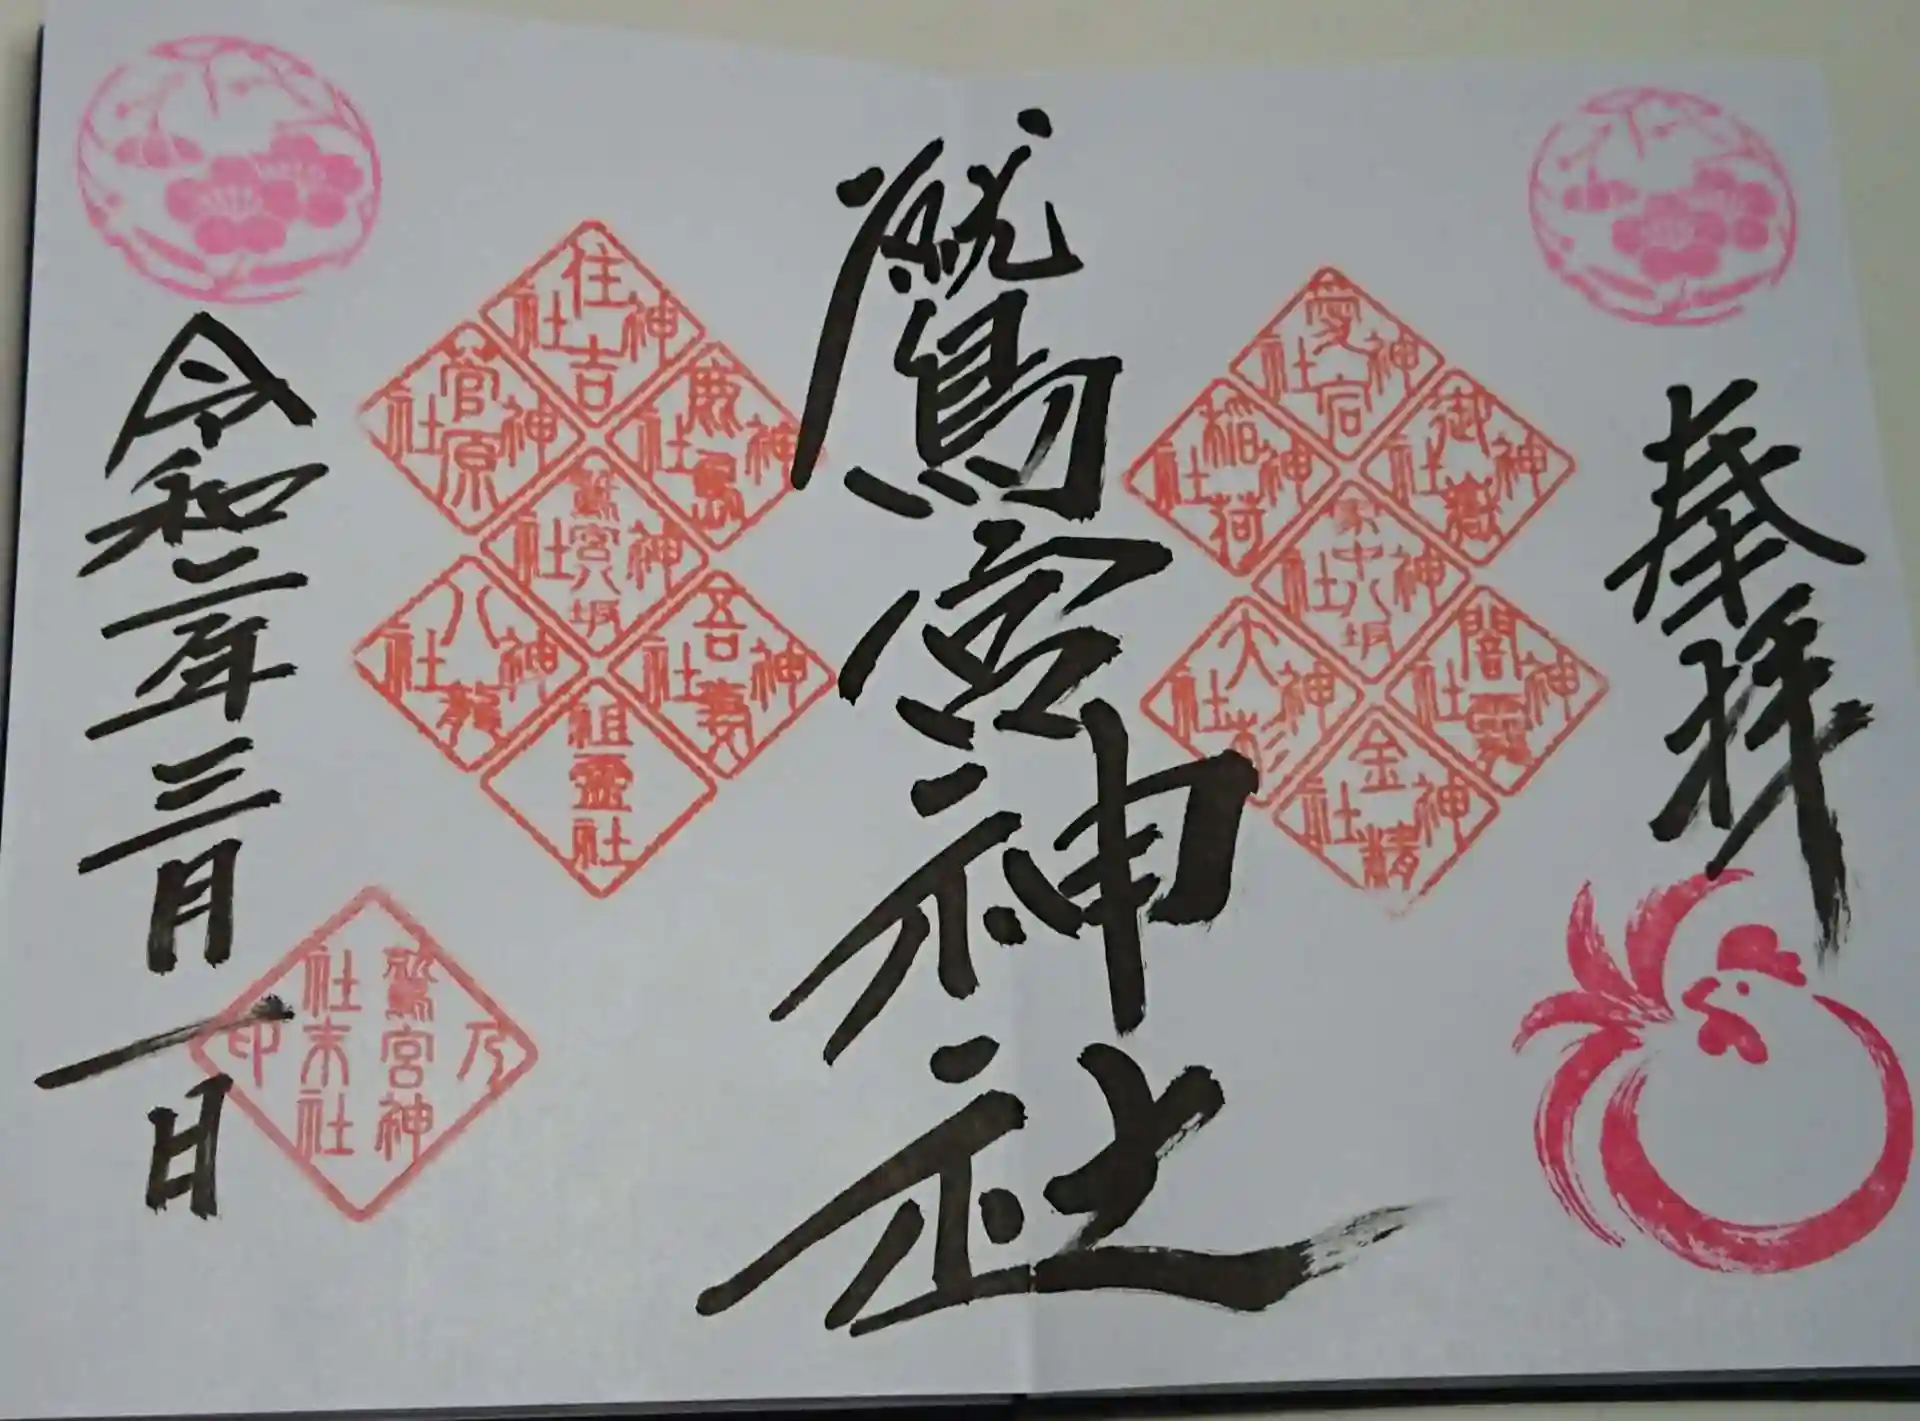 奉拝
愛宕神社
御嶽神社
稲荷神社
家中八坂神社
大杉神社
金精神社
鷲宮神社
住吉神社
鹿島神社
菅原神社
鷲宮八坂神社
吾妻神社
八龍神社
祖霊社
令和二年三月一日
鷲宮神社末社乃印